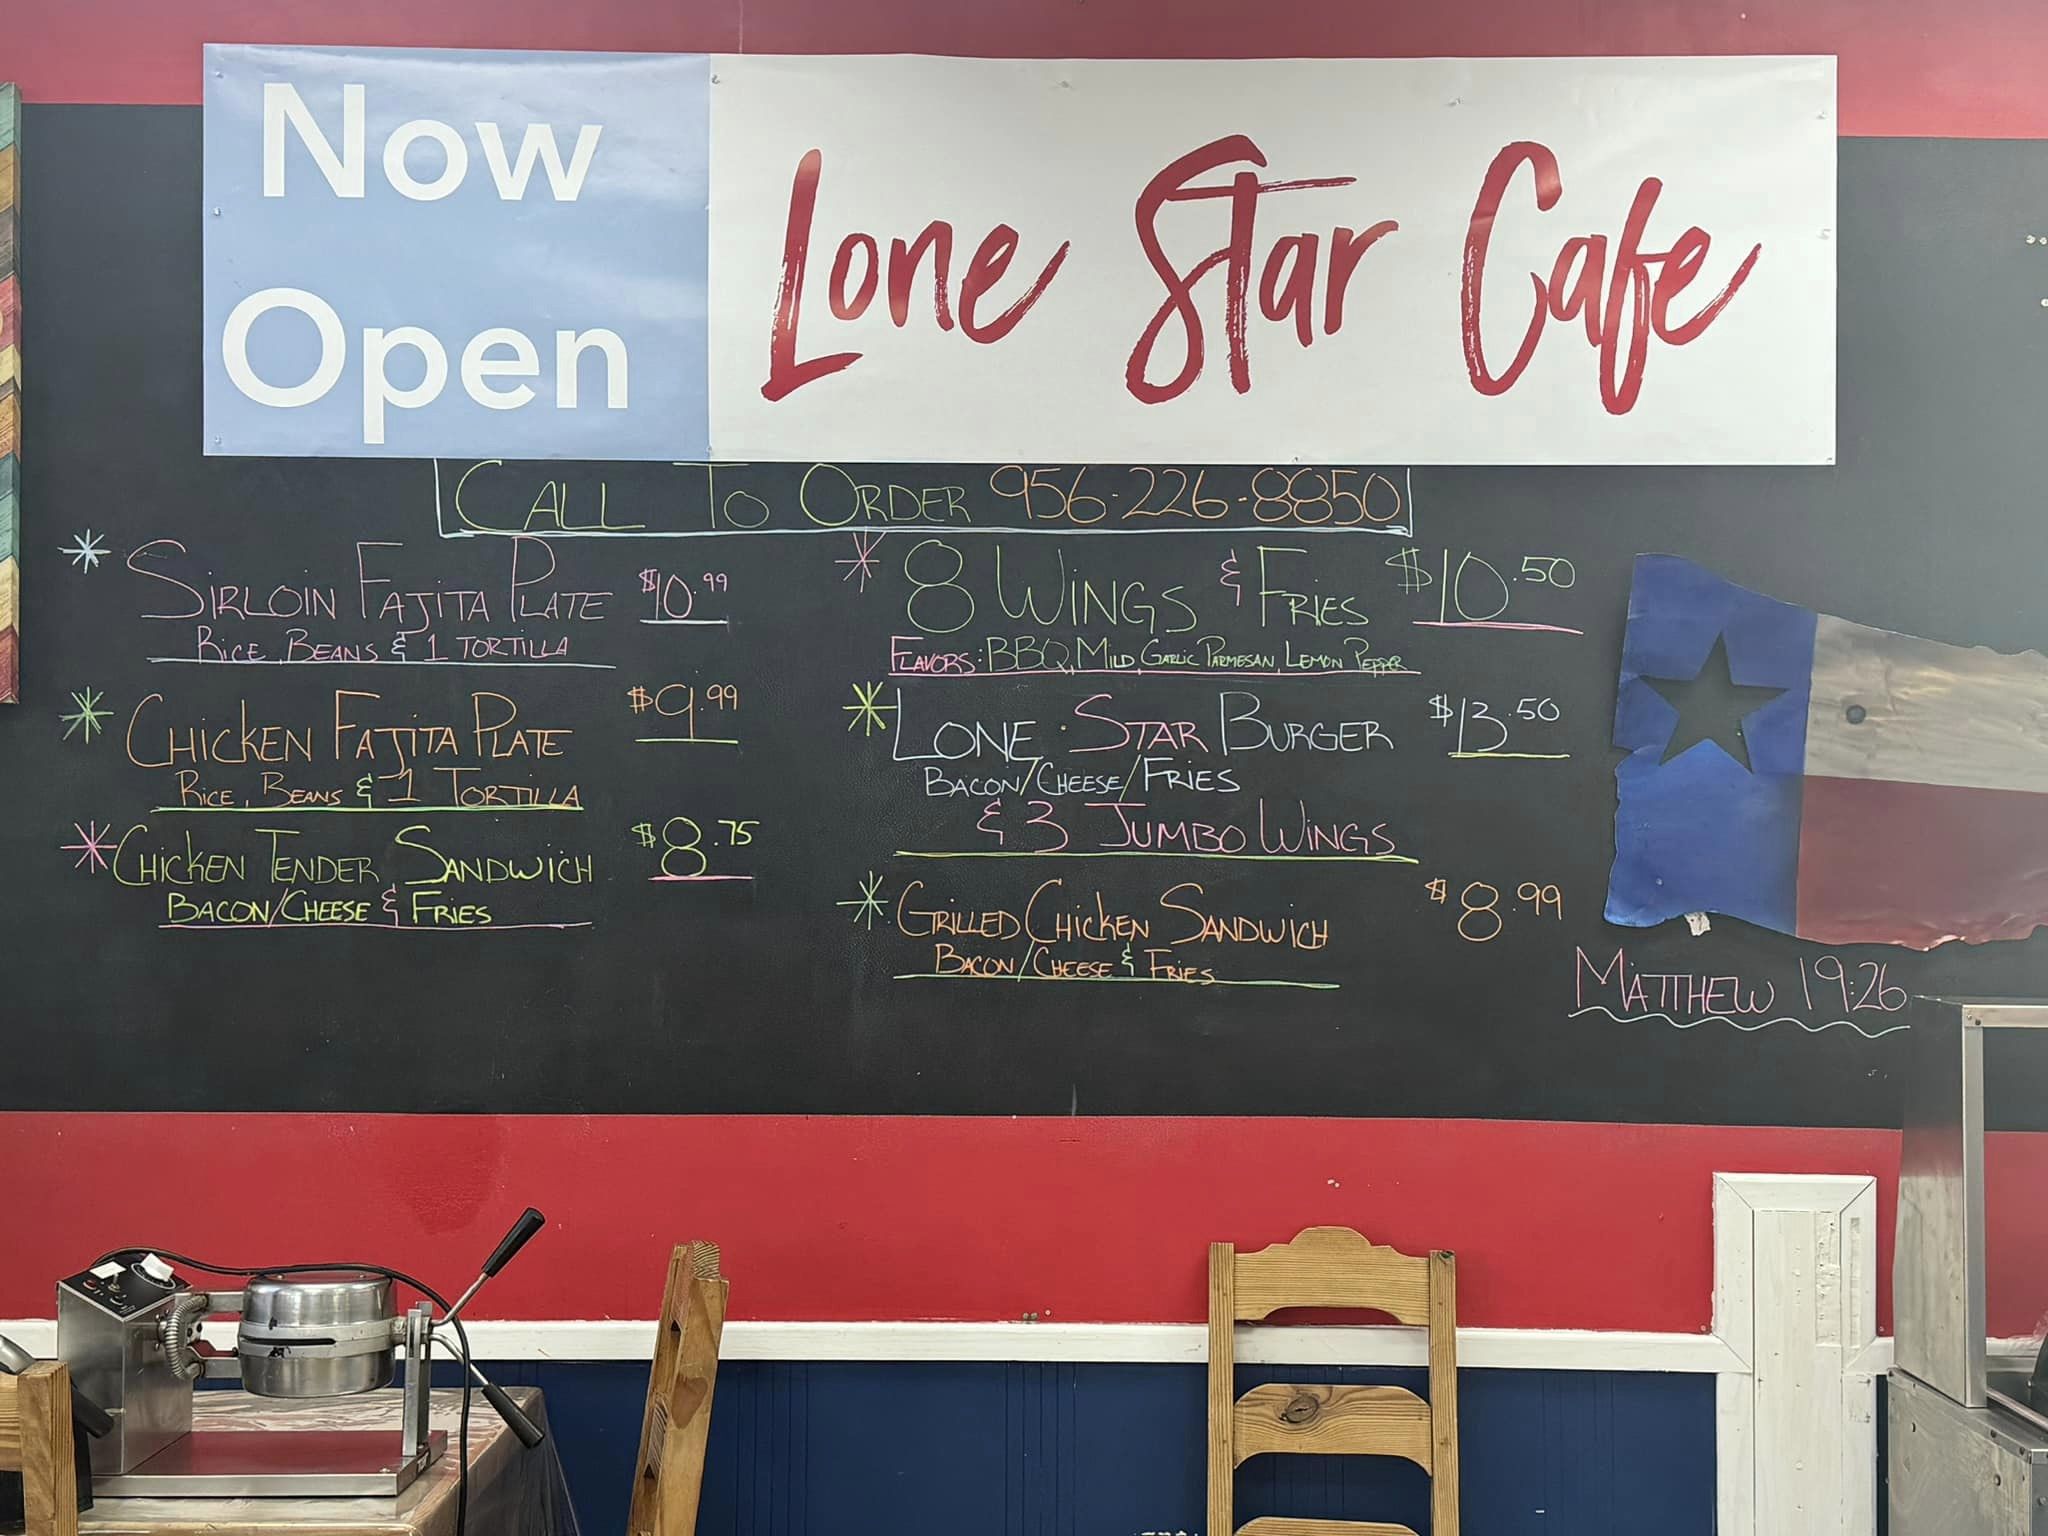 Now
Open
Lone Star Cafe
CALL TO ORDER 956-226-8850
* SIRLOIN FAJITA PLATE $10.99
RICE, BEANS & 1 TORTILLA
* CHICKEN FAJITA PLATE $9.99
RICE, BEANS & 1 TORTILLA
* CHICKEN TENDER SANDWICH $8.75
BACON/CHEESE & FRIES
* 8 WINGS & FRIES $10.50
FLAVORS: BBQ, MILD, GARLIC PARMESAN, LEMON PEPPER
* LONE STAR BURGER $13.50
BACON/CHEESE/FRIES
& 3 JUMBO WINGS
* GRILLED CHICKEN SANDWICH $8.99
BACON/CHEESE & FRIES
MATTHEW 19:26